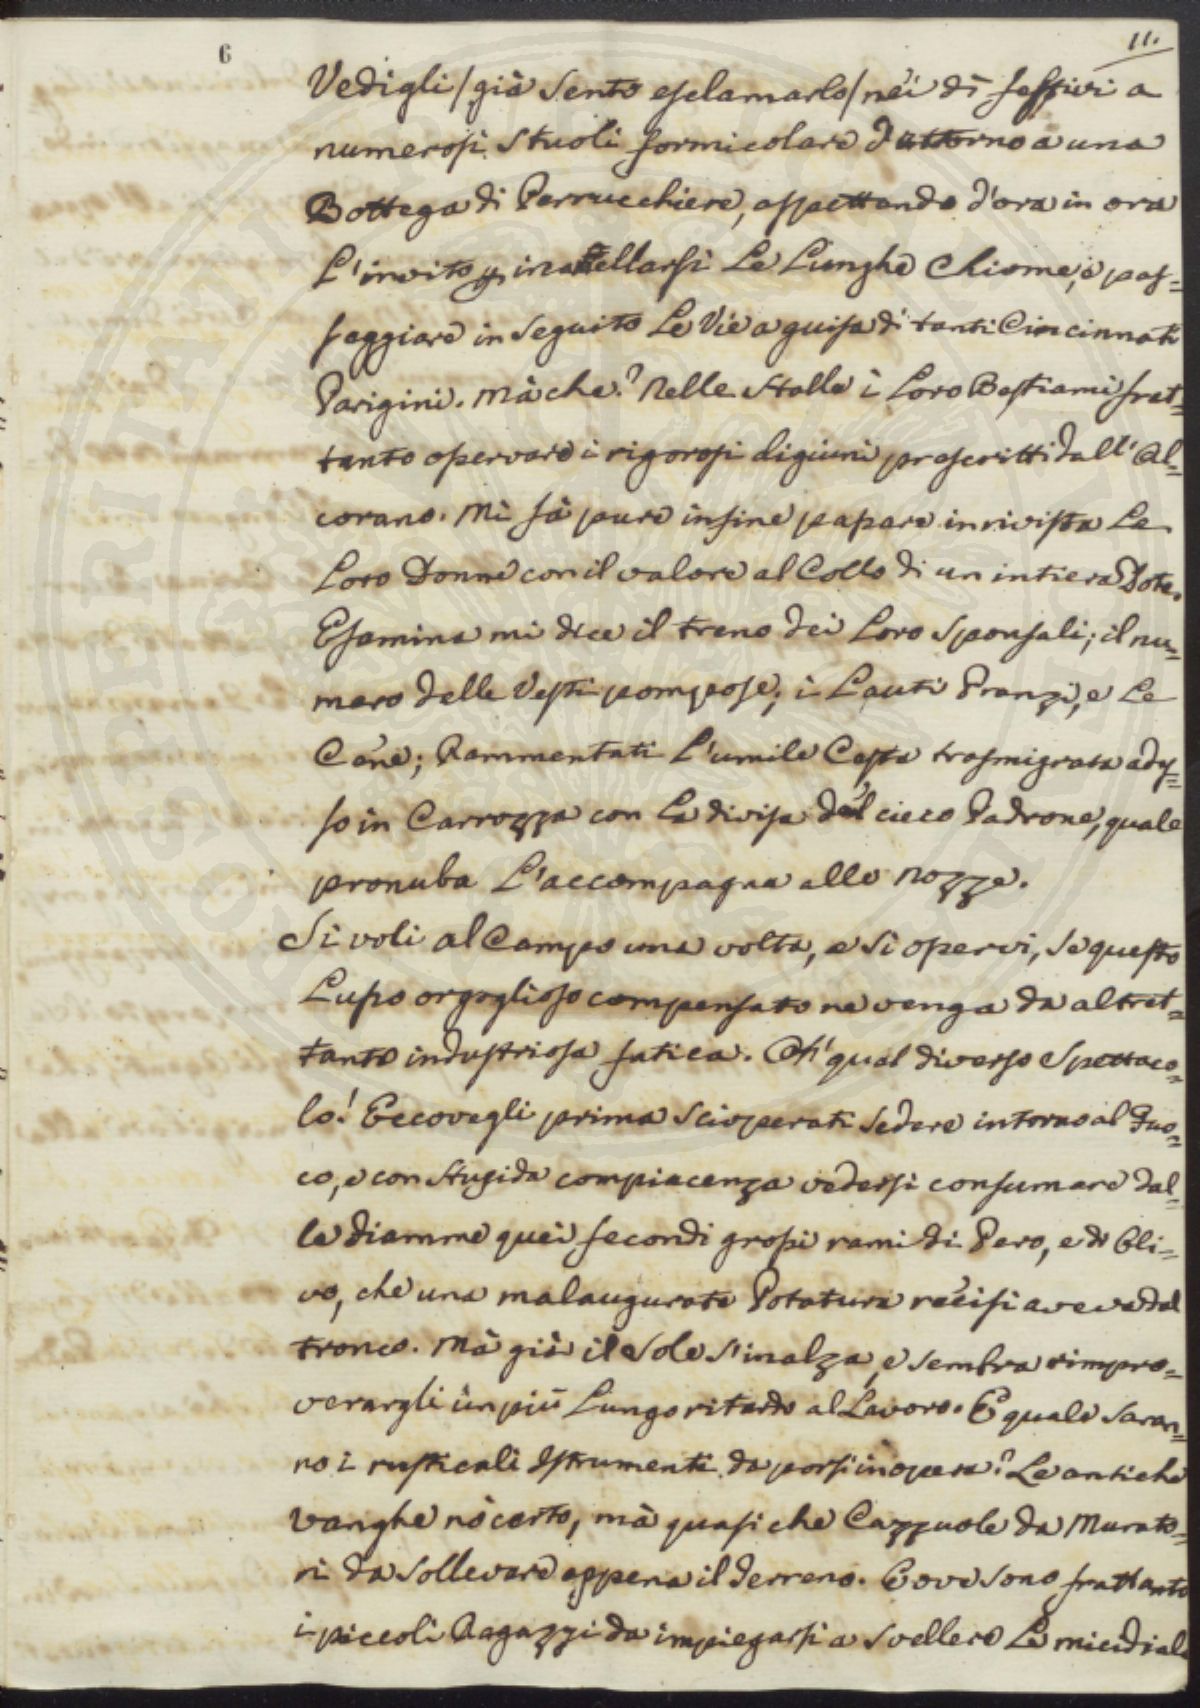 6
11.
Vedigli /già sento esclamarlo/ néi dì festivi a
numerosi stuoli formicolare d'attorno a una
Bottega di Perrucchiere, aspettando d'ora in ora
L'invito inanellarsi Le Lunghe Chiome, e pas=
saggiare in seguito Le Vie a guisa di tanti Cincinnati
Parigini. Mà che? Nelle Stalle i Loro Bestiami frat=
tanto osservare i rigorosi digiuni prescritti dall' Al=
corano. Mi fà pure infine passare in rivista Le
Loro Donne con il valore al Collo di un intiera Dote.
Esamina mi dice il treno dei Loro Sponsali; il nu=
mero delle Vesti pompose; i Lauti Pranzi, e Le
Céne; Rammentati L'umile Cesta trasmigrata ades=
so in Carrozza con La divisa dél cieco Padrone, quale
pronuba L'accompagna alle nozze.
Si voli al Campo una volta, e si osservi, se questo
Lusso orgoglioso compensato ne venga da altret=
tanto industriosa fatica. Oh! qual diverso Spettaco=
lo! Eccovegli prima scioperati sedere intorno al Fuo=
co, e con stupida compiacenza vedersi consumare dal=
le fiamme quéi fecondi grossi rami di Pero, e di Oli=
vo, che una malaugurata Potatura récisi aveva dal
tronco. Mà già il Sole s'inalza, e sembra rimpro=
verargli un più Lungo ritardo al Lavoro. E quale saran=
no i rusticali Istrumenti da porsi in opera? Le antiche
vanghe nò certo, mà quasi che Cazzuole da Murato=
ri da sollevare appena il Terreno. E ove sono frattanto
i piccoli Ragazzi da impiegarsi a svellere Le micidiali